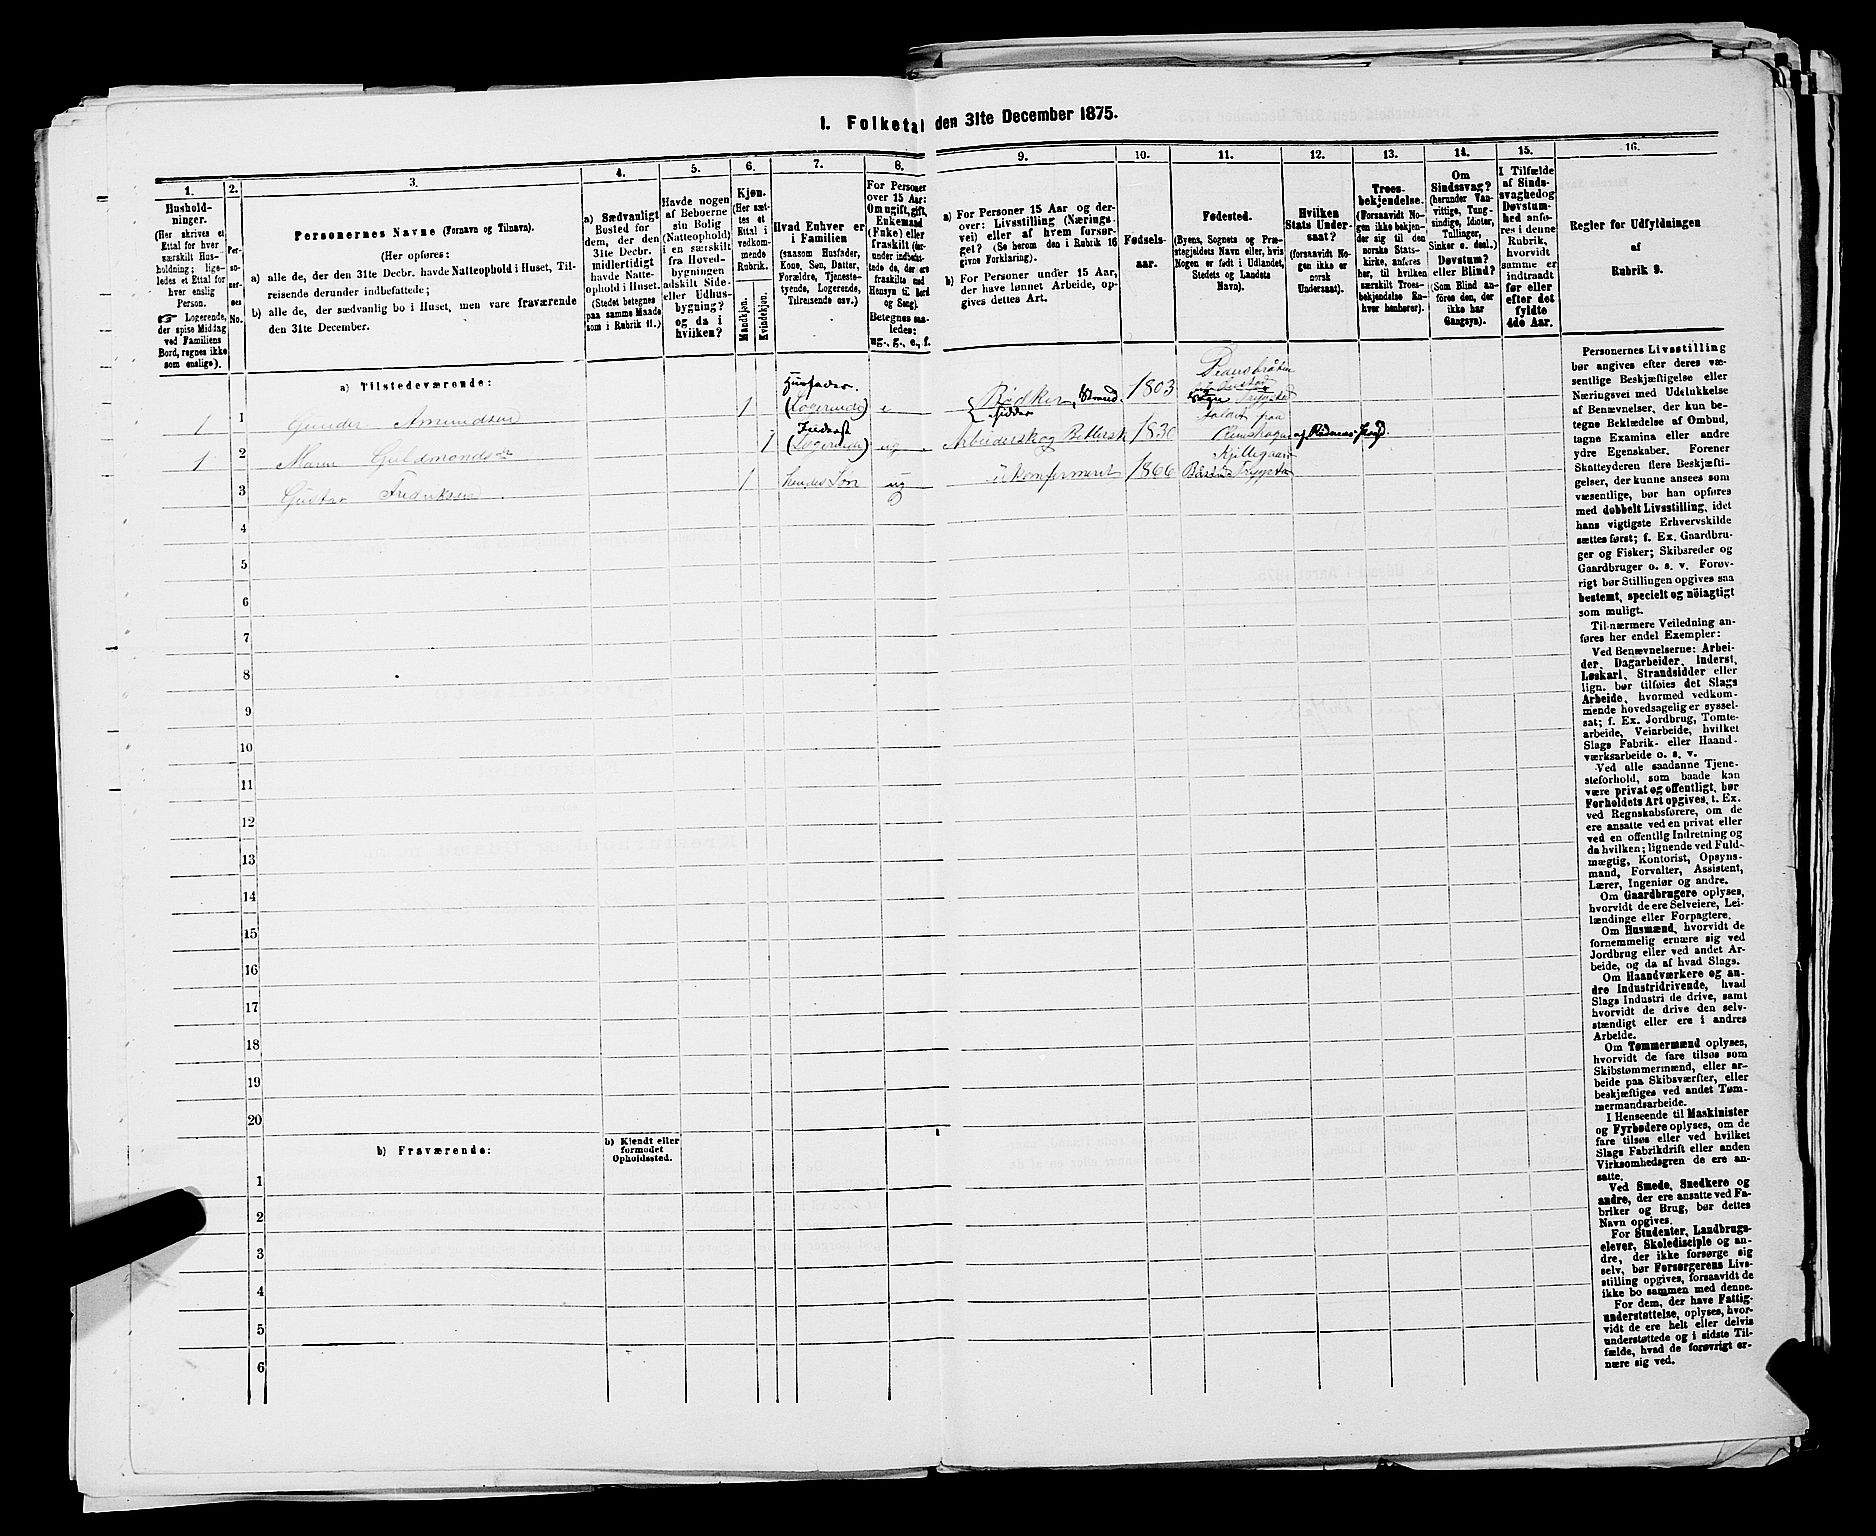 1. Folketal den 31te December 1875.
1.
Hushold-
ninger.
(Her skrives et
Ettal for hver
særskilt Hus-
holdning; lige-
ledes et Ettal for
hver enslig
Person.
☞ Logerende,
der spise Middag
ved Familiens
Bord, regnes ikke
som enslige).
2.
Per-
so-
ner-
nes
No.
3.
Personernes Navne (Fornavn og Tilnavn).
(Her opføres:
a) alle de, der den 31te Decbr. havde Natteophold i Huset, Til-
reisende derunder indbefattede;
b) alle de, der sædvanlig bo i Huset, men vare fraværende
den 31te December.
4.
a) Sædvanligt
Bosted for
dem, der den
31te Decbr.
midlertidigt
havde Natte-
ophold i Huset.
(Stedet betegnes
paa samme Maade
som i Rubrik 11.)
5.
Havde nogen
af Beboerne
sin Bolig
(Natteophold)
i en særskilt
fra Hoved-
bygningen
adskilt Side-
eller Udhus-
bygning?
og da i
hvilken?
6.
Kjøn.
(Her sæt-
tes et
Ettal i
vedkom-
mende
Rubrik.
Mandkjøn.
Kvindekjøn.
7.
Hvad Enhver er
i Familien
(saasom Husfader,
Kone, Søn, Datter,
Forældre, Tjeneste-
tyende, Logerende,
Tilreisende osv.)
8.
For Personer
over 15 Aar:
Om ugift, gift,
Enkemand
(Enke) eller
fraskilt (der-
under indbefat-
tede de, der ere
fraskilte med
Hensyn til Bord
og Seng).
Betegnes saa-
ledes:
ug., g., e., f.
9.
a) For Personer 15 Aar og der-
over: Livsstilling (Nærings-
vei) eller af hvem forsør-
get? (Se herom den i Rubrik 16
givne Forklaring).
b) For Personer under 15 Aar,
der have lønnet Arbeide, op-
gives dettes Art.
10.
Fødsels-
aar.
11.
Fødested.
(Byens, Sognets og Præ-
stegjeldets Navn, eller, hvis
Nogen er født i Udlandet,
Stedets og Landets
Navn).
12.
Hvilken
Stats Under-
saat?
(forsaavidt No-
gen ikke er
norsk
Undersaat).
13.
Troes-
bekjendelse.
(Forsaavidt No-
gen ikke bekjen-
der sig til den
norske Stats-
kirke, anføres
her, til hvilken
særskilt Troes-
bekjendelse En-
hver henhører).
14.
Om
Sindssvag?
(herunder Van-
vittige, Tung-
sindige, Idioter,
Tullinger,
Sinker o. desl.)
Døvstum?
eller Blind?
(Som Blind an-
føres den, der
ikke har
Gangsyn).
15.
I Tilfælde
af Sinds-
svaghed og
Døvstum-
hed anfø-
res i denne
Rubrik,
hvorvidt
samme er
indtraadt
før eller
efter det
fyldte
4de Aar.
16.
Regler for Udfyldningen
af
Rubrik 9.
a) Tilstedeværende:
1 1 Gunder Amundsen 1 Husfader. (Logerende) e Bødker, Strand-
sidder 1803 Trygstad
1 2 Maren Guldmondsdr 1 (Logerende) ug Arbeiderske og Betlersk 1830 af Rødenes
3 Gustav Fredriksen 1 hendes Søn ug ukonfermeret 1866 Trygstad
4
5
6
7
8
9
10
11
12
13
14
15
16
17
18
19
20
b) Fraværende:
b) Kjendt eller
formodet
Opholdssted.
1
2
3
4
5
6
Personernes Livsstilling
bør angives efter deres væ-
sentlige Beskjæftigelse eller
Næringsvei med Udelukkelse
af Benævnelser, der kun be-
tegne Beklædelse af Ombud,
tagne Examina eller andre
ydre Egenskaber. Forener
Skatteyderen flere Beskjæfti-
gelser, der kunne ansees som
væsentlige, bør han opføres
med dobbelt Livsstilling, idet
hans vigtigste Erhvervskilde
sættes først; f. Ex. Gaardbru-
ger og Fisker; Skibsreder og
Gaardbruger o. s. v. Forøv-
rigt bør Stillingen opgives saa
bestemt, specielt og nöiagtigt
som muligt.
Til nærmere Veiledning an-
føres her endel Exempler:
Ved Benævnelserne: Arbei-
der, Dagarbeider, Inderst,
Løskarl, Strandsidder eller
lign. bør tilføies det Slags
Arbeide, hvormed vedkom-
mende hovedsagelig er syssel-
sat; f. Ex. Jordbrug, Tomte-
arbeide, Veiarbeide, hvilket
Slags Fabrik- eller Haand-
værksarbeide o. s. v.
Ved alle saadanne Tjene-
steforhold, som baade kan
være privat og offentligt, bør
Forholdets Art opgives, t. Ex.
ved Regnskabsførere, om de
ere ansatte ved en privat eller
ved en offentlig Indretning og
da hvilken; lignende ved Fuld-
mægtig, Kontorist, Opsyns-
mand, Forvalter, Assistent,
Lærer, Ingeniør og andre.
Om Gaardbrugere oplyses,
hvorvidt de ere Selveiere, Lei-
lændinge eller Forpagtere.
Om Husmænd, hvorvidt de
fornemmelig ernære sig ved
Jordbrug eller ved andet Ar-
beide, og da af hvad Slags.
Om Haandværkere og an-
dre Industridrivende, hvad
Slags Industri de drive, samt
hvorvidt de drive den selv-
stændigt eller ere i andres
Arbeide.
Om Tømmermænd oplyses,
hvorvidt de fare tilsøs som
Skibstømmermænd, eller ar-
beide paa Skibsværfter, eller
beskjæftiges ved andet Tøm-
mermandsarbeide.
I Henseende til Maskinister
og Fyrbødere oplyses, om de
fare tilsøs eller ved hvilket
Slags Fabrikdrift eller anden
Virksomhedsgren de ere an-
satte.
Ved Smede, Snedkere og
andre, der ere ansatte ved Fa-
briker og Brug, bør dettes
Navn opgives.
For Studenter, Landbrugs-
elever, Skoledisciple og an-
dre, der ikke forsørge sig
selv, bør Forsørgerens Livs-
stilling opgives, forsaavidt de
ikke bo sammen med denne.
For dem, der have Fattig-
understøttelse, oplyses, hvor-
vidt de ere helt eller delvis
understøttede og i sidste Til-
fælde, hvad de forøvrigt er-
nære sig ved.